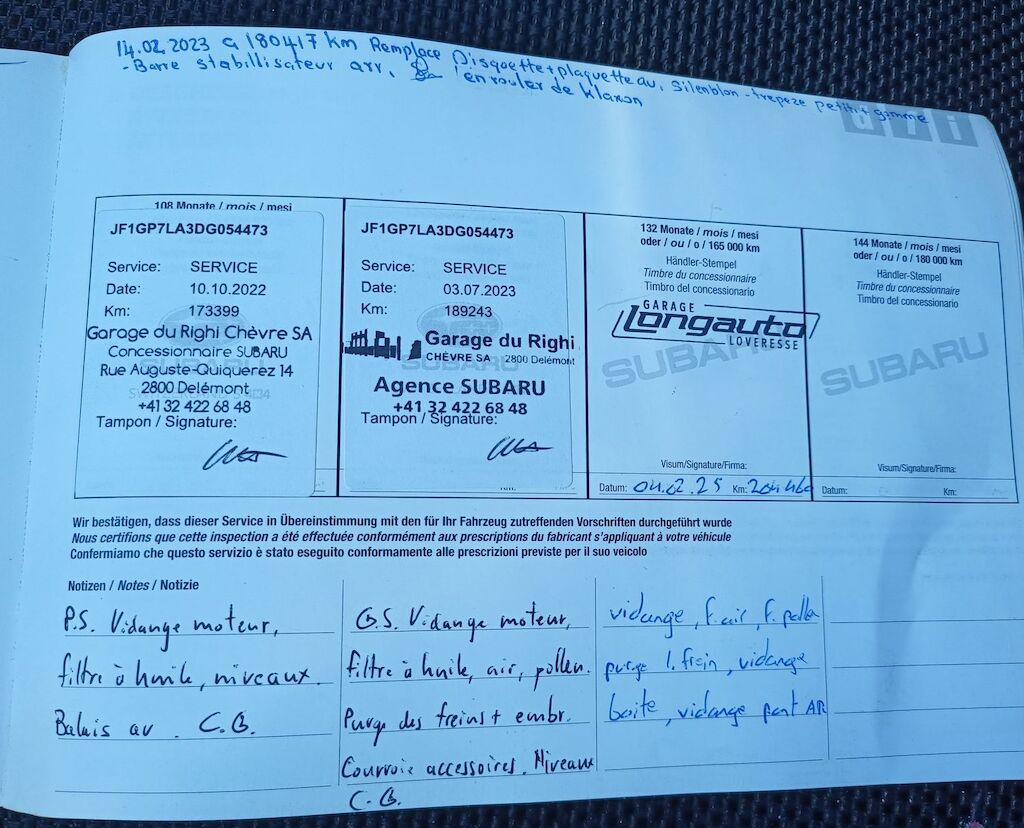 14.02.2023 a 180417 km Remplace Disquette+plaquette av, Silenblon - trepeze petit + gamme
- Barre stabillisateur arr, l'enrouler de klaxon
108 Monate / mois / mesi
JF1GP7LA3DG054473
Service: SERVICE
Date: 10.10.2022
Km: 173399
Garage du Righi Chèvre SA
Concessionnaire SUBARU
Rue Auguste-Quiquerez 14
2800 Delémont
+41 32 422 68 48
Tampon / Signature:
JF1GP7LA3DG054473
Service: SERVICE
Date: 03.07.2023
Km: 189243
Garage du Righi
CHÈVRE SA 2800 Delémont
Agence SUBARU
+41 32 422 68 48
Tampon / Signature:
132 Monate / mois / mesi
oder / ou / o / 165 000 km
Händler-Stempel
Timbre du concessionnaire
Timbro del concessionario
GARAGE
Longauto
LOVERESSE
SUBARU
Visum/Signature/Firma:
Datum: 04.02.25 Km:
144 Monate / mois / mesi
oder / ou / o / 180 000 km
Händler-Stempel
Timbre du concessionnaire
Timbro del concessionario
SUBARU
Visum/Signature/Firma:
Datum: Km:
Wir bestätigen, dass dieser Service in Übereinstimmung mit den für Ihr Fahrzeug zutreffenden Vorschriften durchgeführt wurde
Nous certifions que cette inspection a été effectuée conformément aux prescriptions du fabricant s'appliquant à votre véhicule
Confermiamo che questo servizio è stato eseguito conformamente alle prescrizioni previste per il suo veicolo
Notizen / Notes / Notizie
P.S. Vidange moteur,
filtre à huile, niveaux.
Balais av. C.B.
G.S. Vidange moteur,
filtre à huile, air, pollen.
Purge des freins + embr.
Courroie accessoires. Niveaux
C.B.
vidange, f. air, f. polle
purge l. frein, vidange
boite, vidange pont AR